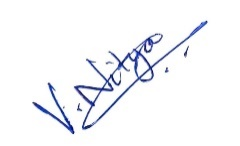 V. Nitya